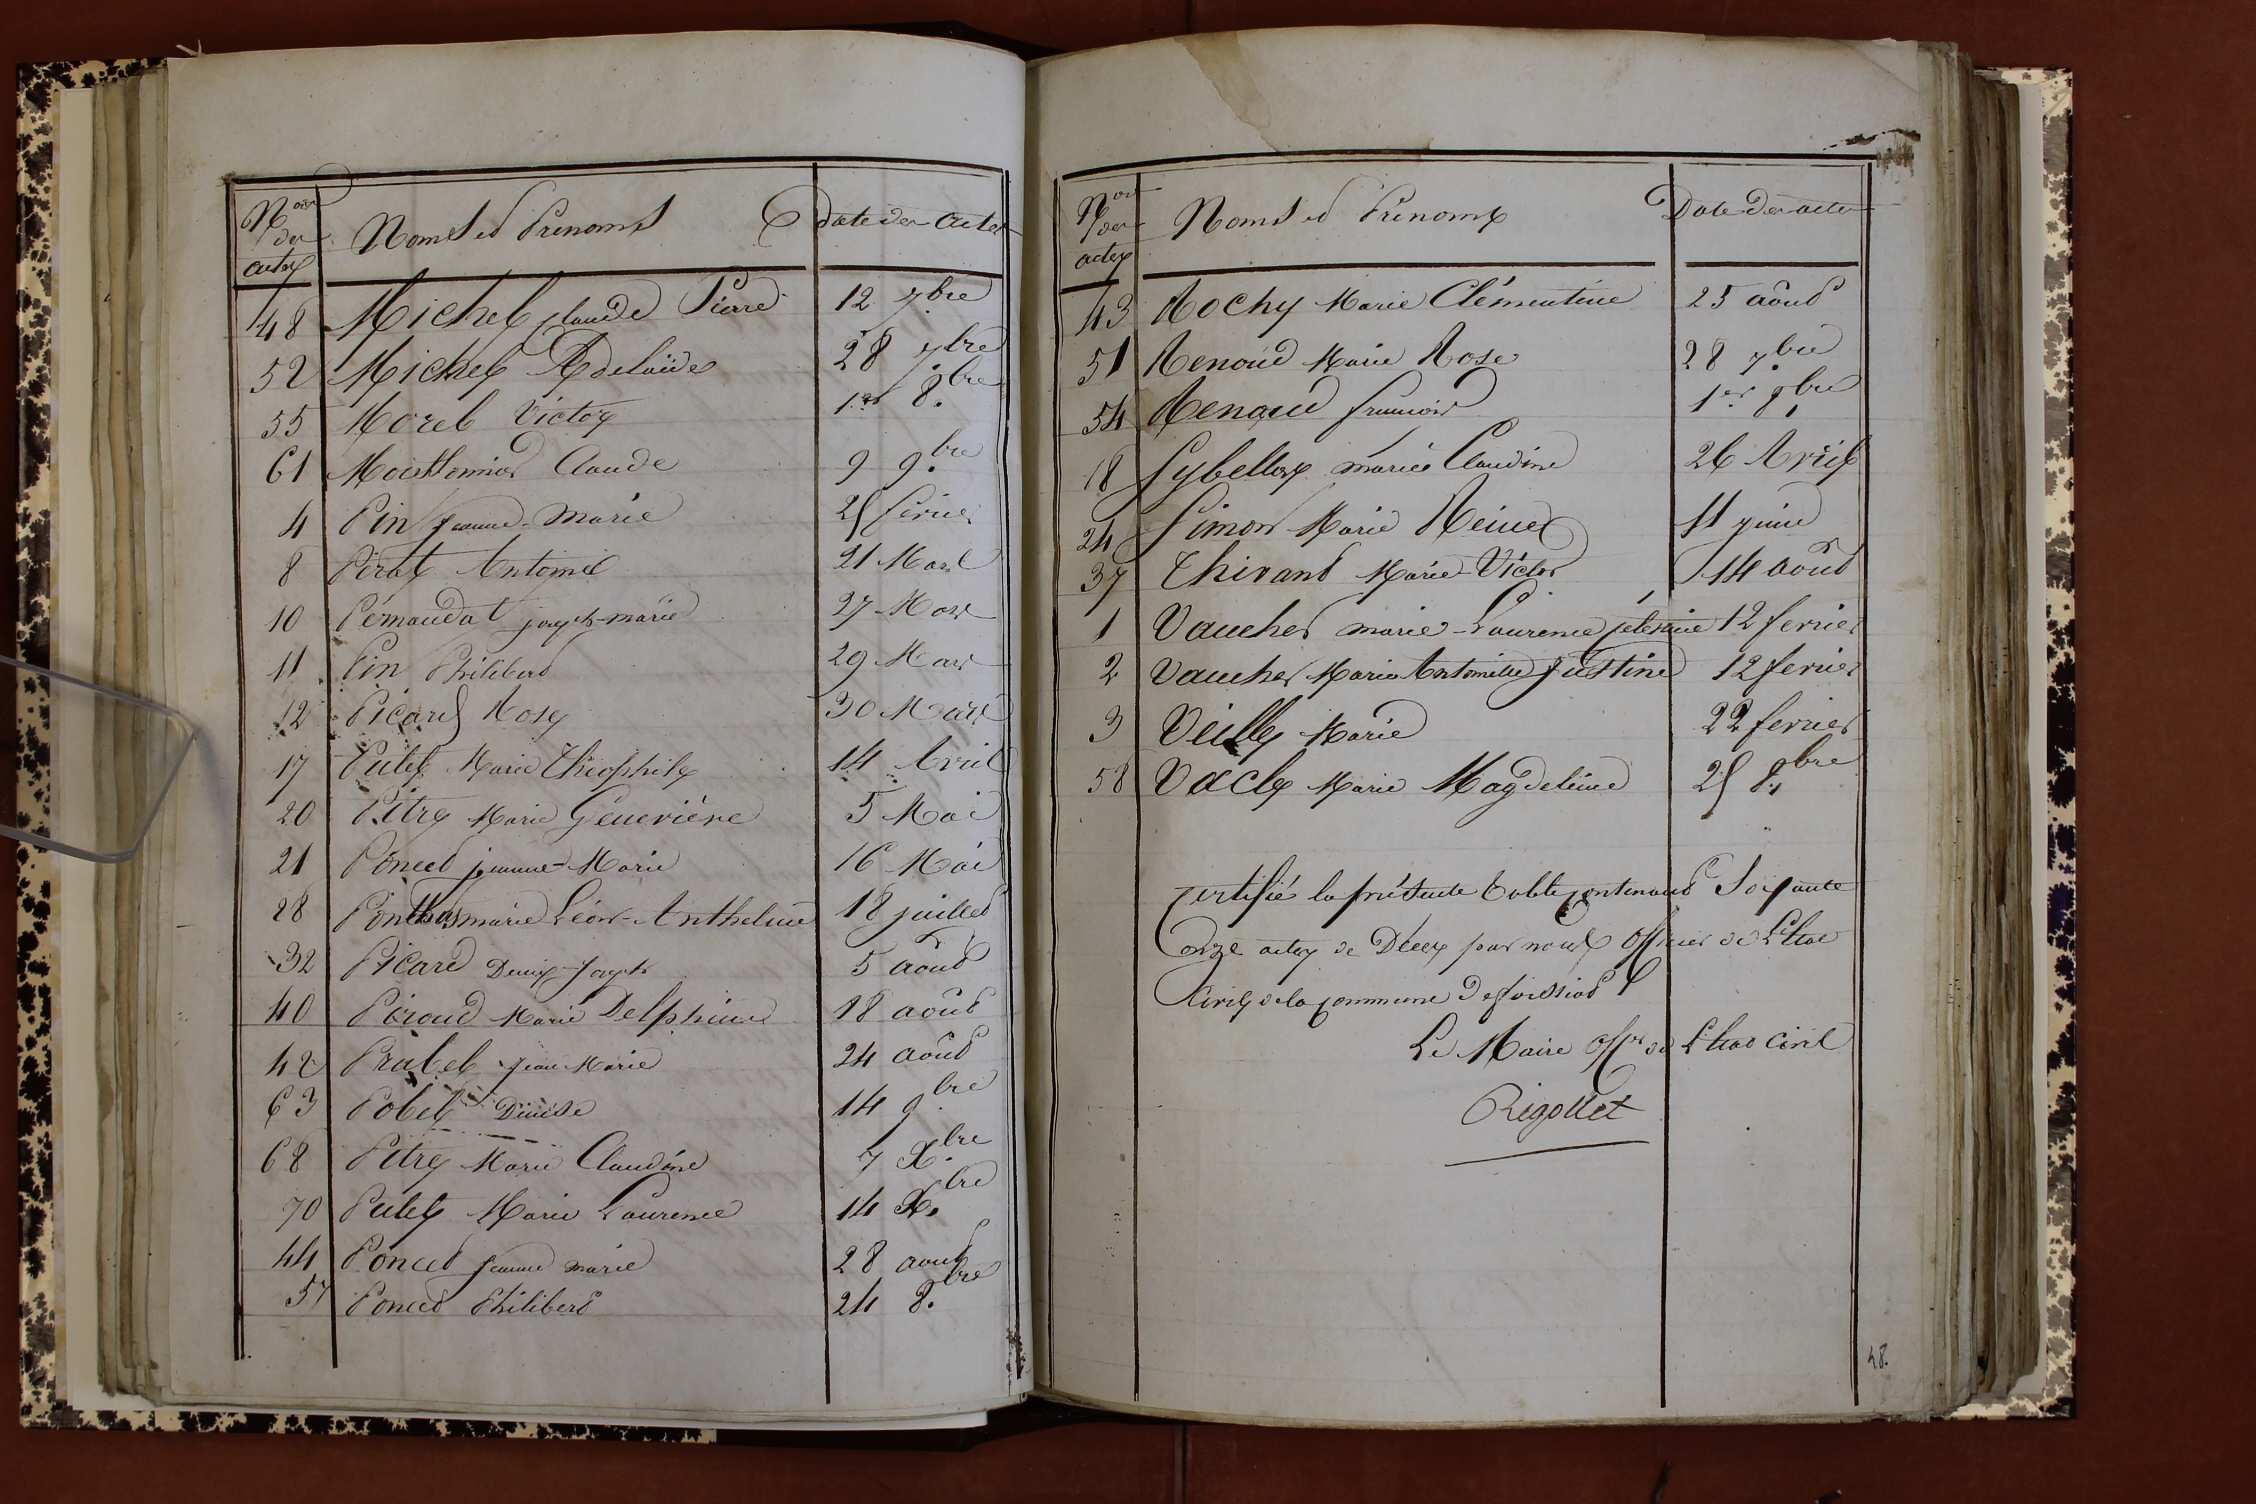 Nos des actes Noms et Prenoms Date des actes
48 Michel claude Pierre 12 7bre
52 Michel Adelaïde 28 7bre
55 Morel Victor 1er 8bre
61 Claude 9 9bre
4 Pin jeanne-Marie 25 fevrier
8 Perat Antoine 21 Mars
10 Pernaudat joseph-marie 27 Mars
11 Pin Philibert 29 Mars
12 Picard Rose 30 Mars
17 Putet Marie Théophile 14 Avril
20 Pitre Marie Geneviève 5 Mai
21 Poncet jeanne-Marie 16 Mai
28 Ponthus marie Léon-Anthelme 18 juillet
32 Picard Denis-Joseph 5 août
40 Piroud Marie Delphine 18 août
42 Prabel jean Marie 24 août
63 Pobel Denise 14 9bre
68 Pitre Marie Claudine 7 Xbre
70 Putet Marie Laurence 14 Xbre
44 Poncet jeanne marie 28 aout
57 Poncet Philibert 24 8bre
Nos des actes Noms et Prénoms Date des actes
43 Rochy Marie Clémentine 25 aôut
51 Renoud Marie Rose 28 7bre
54 Renaud francois 1er 8bre
18 Sybellas marie Claudine 26 Avril
24 Simon Marie Reine 11 juin
37 Thivant Marie-Victor 14 août
1 Vaucher marie-Laurence 12 fevrier
2 Vaucher Marie Antoinette Justine 12 fevrier
3 Veille Marie 22 fevrier
58 Vacle Marie Magdeleine 25 8bre
Certifié la présente Table contenant Soixante
onze actes de Décès par nous Officier de L'Etat
Civil de la commune de foissiat
Le Maire Offer de L'Etat Civil
Rigollet
48.